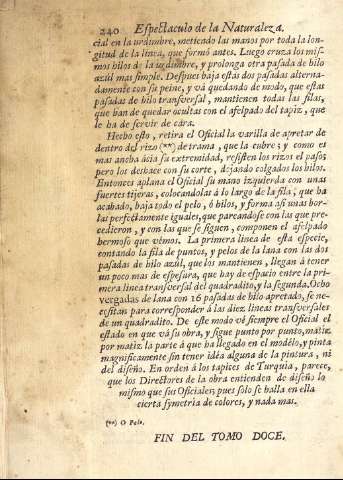 240 Espectaculo de la Naturaleza.
cial en la urdimbre, metiendo las manos por toda la lon-
gitud de la linea, que formó antes. Luego cruza los mis-
mos hilos de la urdimbre, y prolonga otra pasada de hilo
azúl mas simple. Despues baja estas dos pasadas alterna-
damente con su peine, y vá quedando de modo, que estas
pasadas de hilo transversal, mantienen todas las filas,
que han de quedar ocultas con el afelpado del tapiz, que
le ha de servir de cára.
Hecho esto, retira el Oficial la varilla de apretar de
dentro del rizo (**) de trama, que la cubre; y como es
mas ancha ácia su extremidad, resisten los rizos el paso;
pero los deshace con su corte, dejando colgados los hilos.
Entonces aplana el Oficial su mano izquierda con unas
fuertes tijeras, colocandolas á lo largo de la fila; que ha
acabado, baja todo el pelo, ó hilos, y forma asi unas bor-
las perfectamente iguales, que pareandose con las que pre-
cedieron, y con las que se siguen, componen el afelpado
hermoso que vémos. La primera linea de esta especie,
contando la fila de puntos, y pelos de la lana con las dos
pasadas de hilo azúl, que los mantienen, llegan á tener
un poco mas de espesura, que hay de espacio entre la pri-
mera linea transversal del quadradito, y la segunda. Ocho
vergadas de lana con 16 pasadas de hilo apretado, se ne-
cesitan para corresponder á las diez lineas transversales
de un quadradito. De este modo vé siempre el Oficial el
estado en que vá su obra, y sigue punto por punto, matiz
por matiz la parte á que ha llegado en el modélo, y pinta
magnificamente sin tener idéa alguna de la pintura, ni
del diseño. En orden á los tapices de Turquía, parece,
que los Directores de la obra entienden de diseño lo
mismo que sus Oficiales, pues solo se halla en ella
cierta symetria de colores, y nada mas.
(**) O Pelo.
FIN DEL TOMO DOCE.